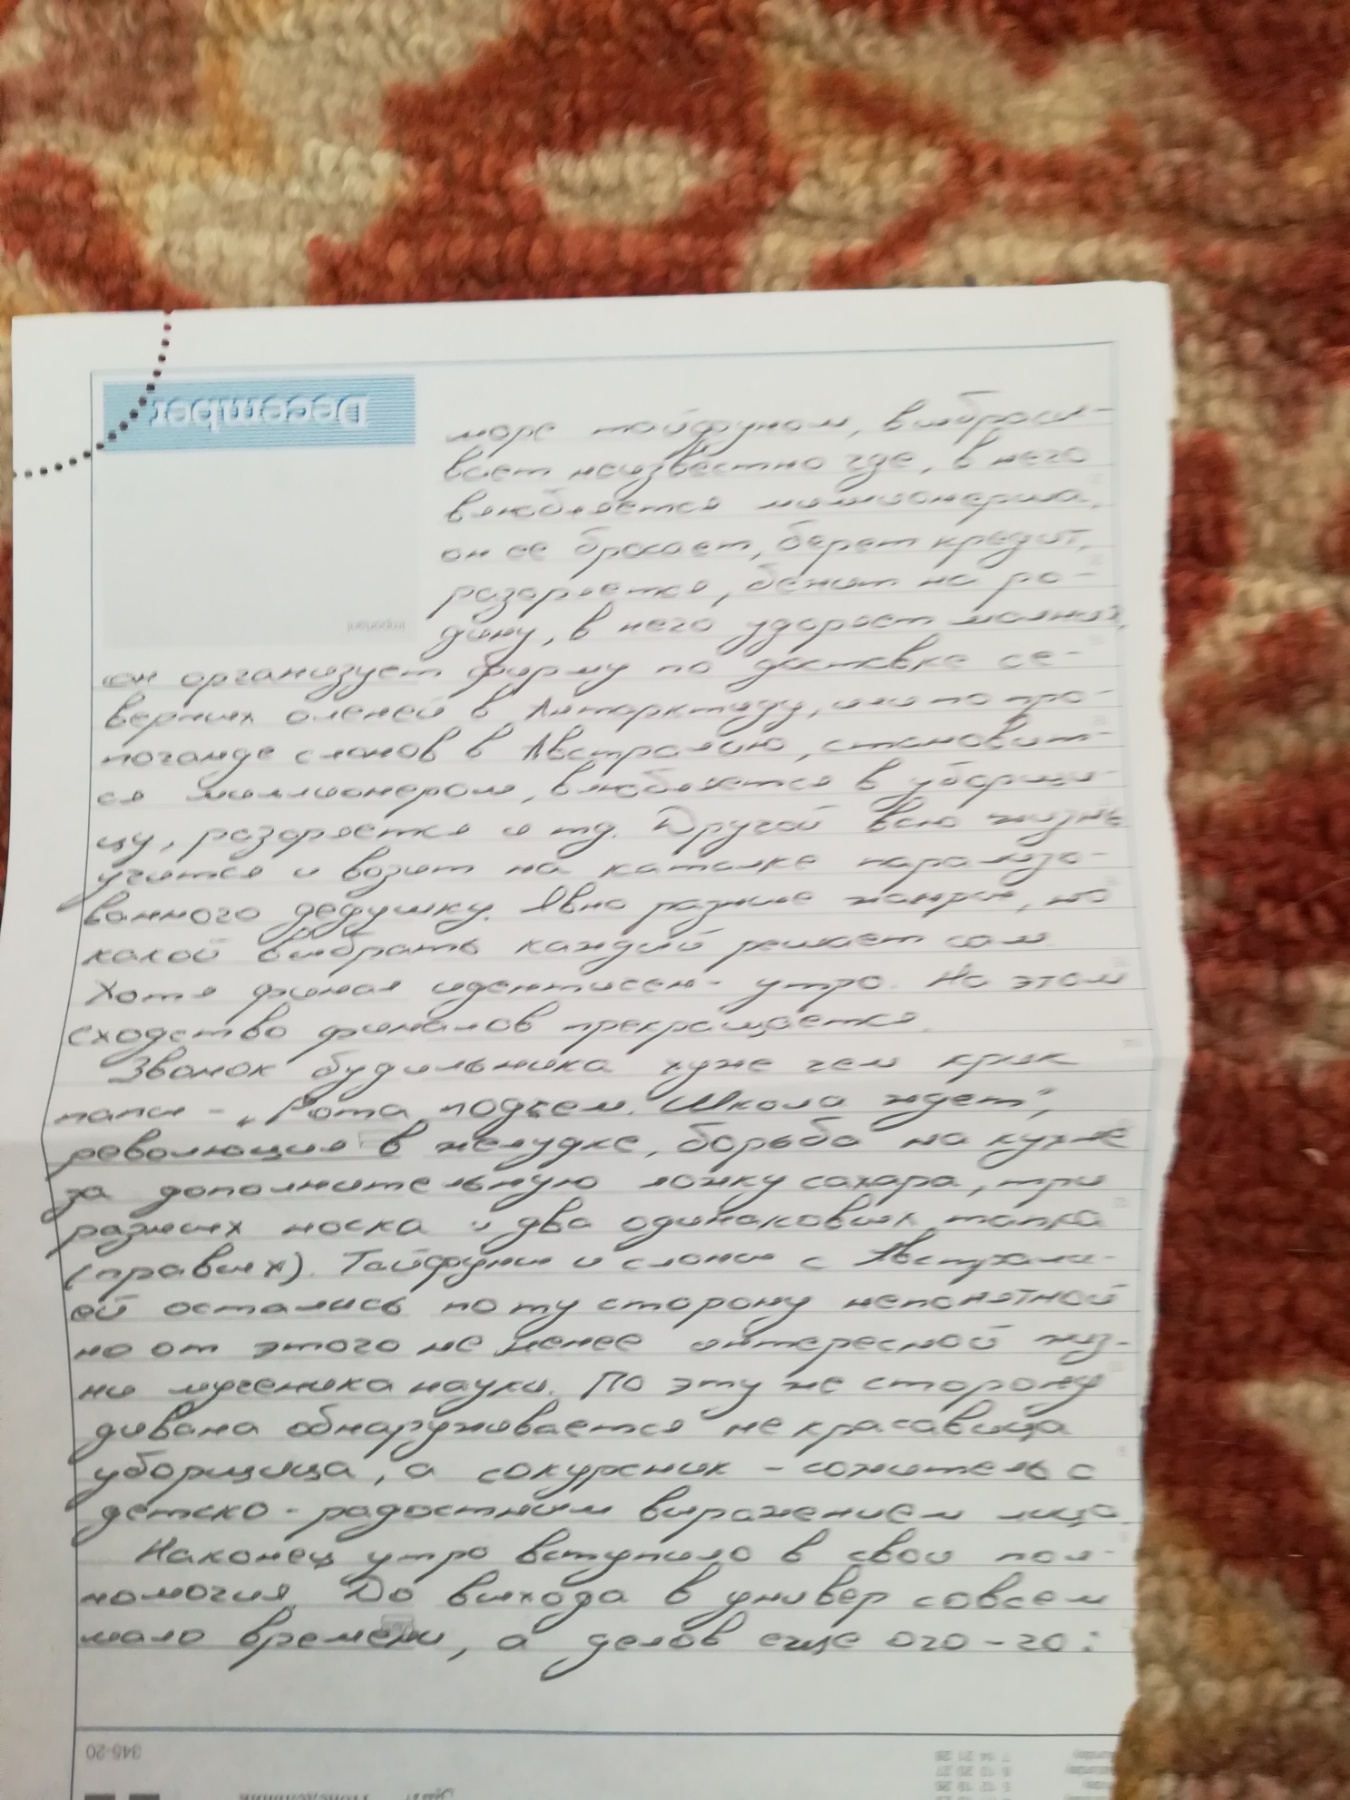 December
море тайфуном, выбрасы-
вает неизвестно где, в него
влюбляется миллионерша,
он ее бросает, берет кредит,
разоряется, бежит на ро-
дину, в него ударяет молния,
Important
он организует фирму по доставке се-
верных оленей в Антарктиду, или по про-
паганде слонов в Австралию, становит-
ся миллионером, влюбляется в уборщи-
цу, разоряется и тд. Другой всю жизнь
учится и возит на каталке парализо-
ванного дедушку. Явно разные жанры, но
какой выбрать каждый решает сам.
Хотя финал идентисен - утро. На этом
сходство финалов прекращается.
Звонок будильника хуже чем крик
папы - „Рота подъем. Школа ждет“,
революция в желудке, борьба на кухне
за дополнительную ложку сахара, три
разных носка и два одинаковых тапка
(правых). Тайфуны и слоны с Австрали-
ей остались по ту сторону непонятной
но от этого не менее интересной жиз-
ни мученика науки. По эту же сторону
дивана обнаруживается не красавица
уборщица, а сокурсник - сожитель с
детско - радостным выражением лица
Наконец утро вступило в свои пол-
номочия. До выхода в универ совсем
мало времени, а делов еще ого-го:
345-20
7 14 21 28
6 13 20 27
5 12 19 26
Понедельник